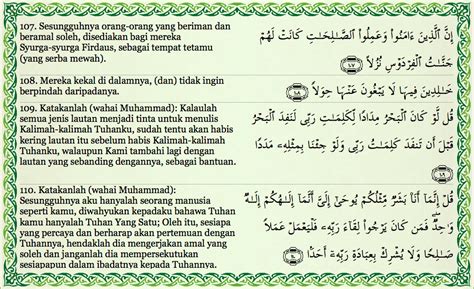 107. Sesungguhnya orang-orang yang beriman dan
beramal soleh, disediakan bagi mereka
Syurga-syurga Firdaus, sebagai tempat tetamu
(yang serba mewah).
إِنَّ ٱلَّذِينَ ءَامَنُوا۟ وَعَمِلُوا۟ ٱلصَّـٰلِحَـٰتِ كَانَتْ لَهُمْ
جَنَّـٰتُ ٱلْفِرْدَوْسِ نُزُلًا ١٠٧
108. Mereka kekal di dalamnya, (dan) tidak ingin
berpindah daripadanya.
خَـٰلِدِينَ فِيهَا لَا يَبْغُونَ عَنْهَا حِوَلًا ١٠٨
109. Katakanlah (wahai Muhammad): Kalaulah
semua jenis lautan menjadi tinta untuk menulis
Kalimah-kalimah Tuhanku, sudah tentu akan habis
kering lautan itu sebelum habis Kalimah-kalimah
Tuhanku, walaupun Kami tambahi lagi dengan
lautan yang sebanding dengannya, sebagai bantuan.
قُل لَّوْ كَانَ ٱلْبَحْرُ مِدَادًا لِّكَلِمَـٰتِ رَبِّى لَنَفِدَ ٱلْبَحْرُ
قَبْلَ أَن تَنفَدَ كَلِمَـٰتُ رَبِّى وَلَوْ جِئْنَا بِمِثْلِهِۦ مَدَدًا
١٠٩
110. Katakanlah (wahai Muhammad):
Sesungguhnya aku hanyalah seorang manusia
seperti kamu, diwahyukan kepadaku bahawa Tuhan
kamu hanyalah Tuhan Yang Satu; Oleh itu, sesiapa
yang percaya dan berharap akan pertemuan dengan
Tuhannya, hendaklah dia mengerjakan amal yang
soleh dan janganlah dia mempersekutukan
sesiapapun dalam ibadatnya kepada Tuhannya.
قُلْ إِنَّمَآ أَنَا۠ بَشَرٌ مِّثْلُكُمْ يُوحَىٰٓ إِلَىَّ أَنَّمَآ إِلَـٰهُكُمْ إِلَـٰهٌ
وَٰحِدٌ فَمَن كَانَ يَرْجُوا۟ لِقَآءَ رَبِّهِۦ فَلْيَعْمَلْ عَمَلًا
صَـٰلِحًا وَلَا يُشْرِكْ بِعِبَادَةِ رَبِّهِۦٓ أَحَدًۢا ١١٠